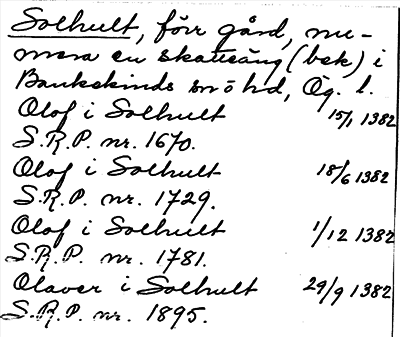 Solhult, förr gård, nu-
mera en skatteäng (bek) i
Bankekinds sn o hd, Ög. l.
Olof i Solhult 15/1 1382
S.R.P. nr. 1670.
Olof i Solhult 18/6 1382
S.R.P. nr. 1729.
Olof i Solhult 1/12 1382
S.R.P. nr. 1781.
Olaver i Solhult 29/9 1382
S.R.P. nr. 1895.